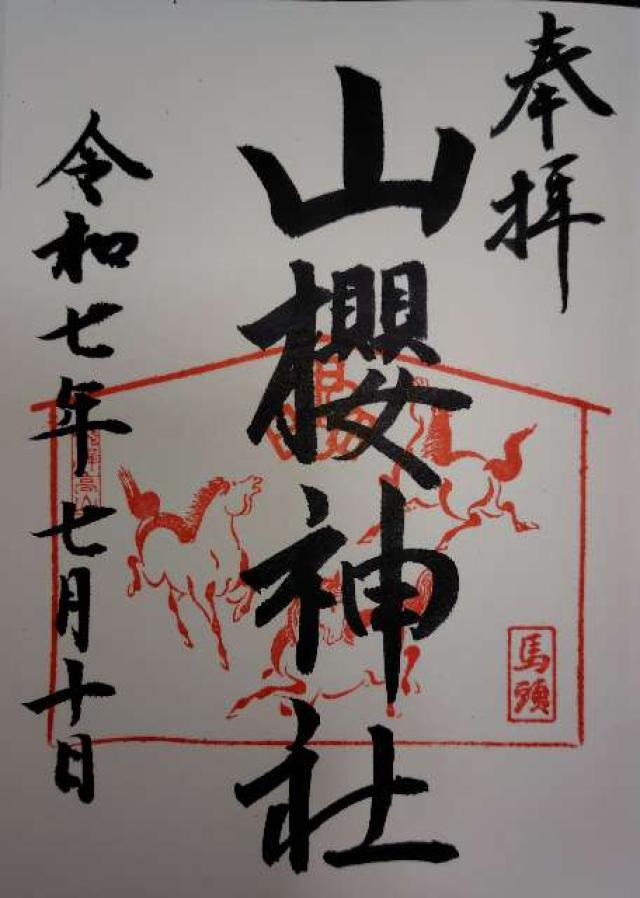 奉拝
山櫻神社
令和七年七月十日
馬頭